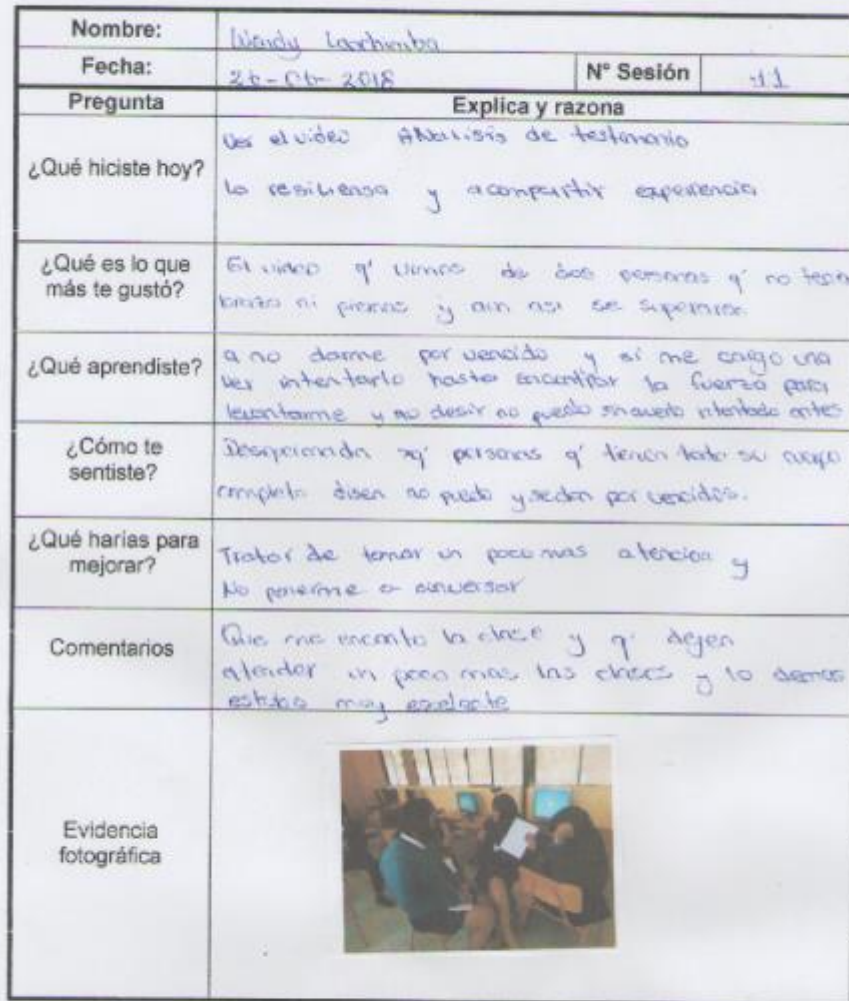 Nombre: Wendy
Fecha: 2018 N° Sesión 11
Pregunta Explica y razona
¿Qué hiciste hoy? Ver el video Analisis de testimonio
la resiliensa y acompartir experiencia
¿Qué es lo que
más te gustó?
El video q' vimos de dos personas q' no tenia
brazo ni piernas y aun asi se superaron
¿Qué aprendiste?
a no darme por vencido y si me caigo una
ves intentarlo hasta encontrar la fuerza para
levantarme y no desir no puedo sin averlo intentado antes
¿Cómo te
sentiste?
xq' personas q' tienen todo su cuerpo
completo disen no puedo y sedan por vencidos.
¿Qué harías para
mejorar?
Tratar de tomar un poco mas atencion y
No ponerme a conversar
Comentarios
Que me encanto la clase y q' dejen
atender un poco mas las clases y lo demas
estubo muy exelente
Evidencia
fotográfica